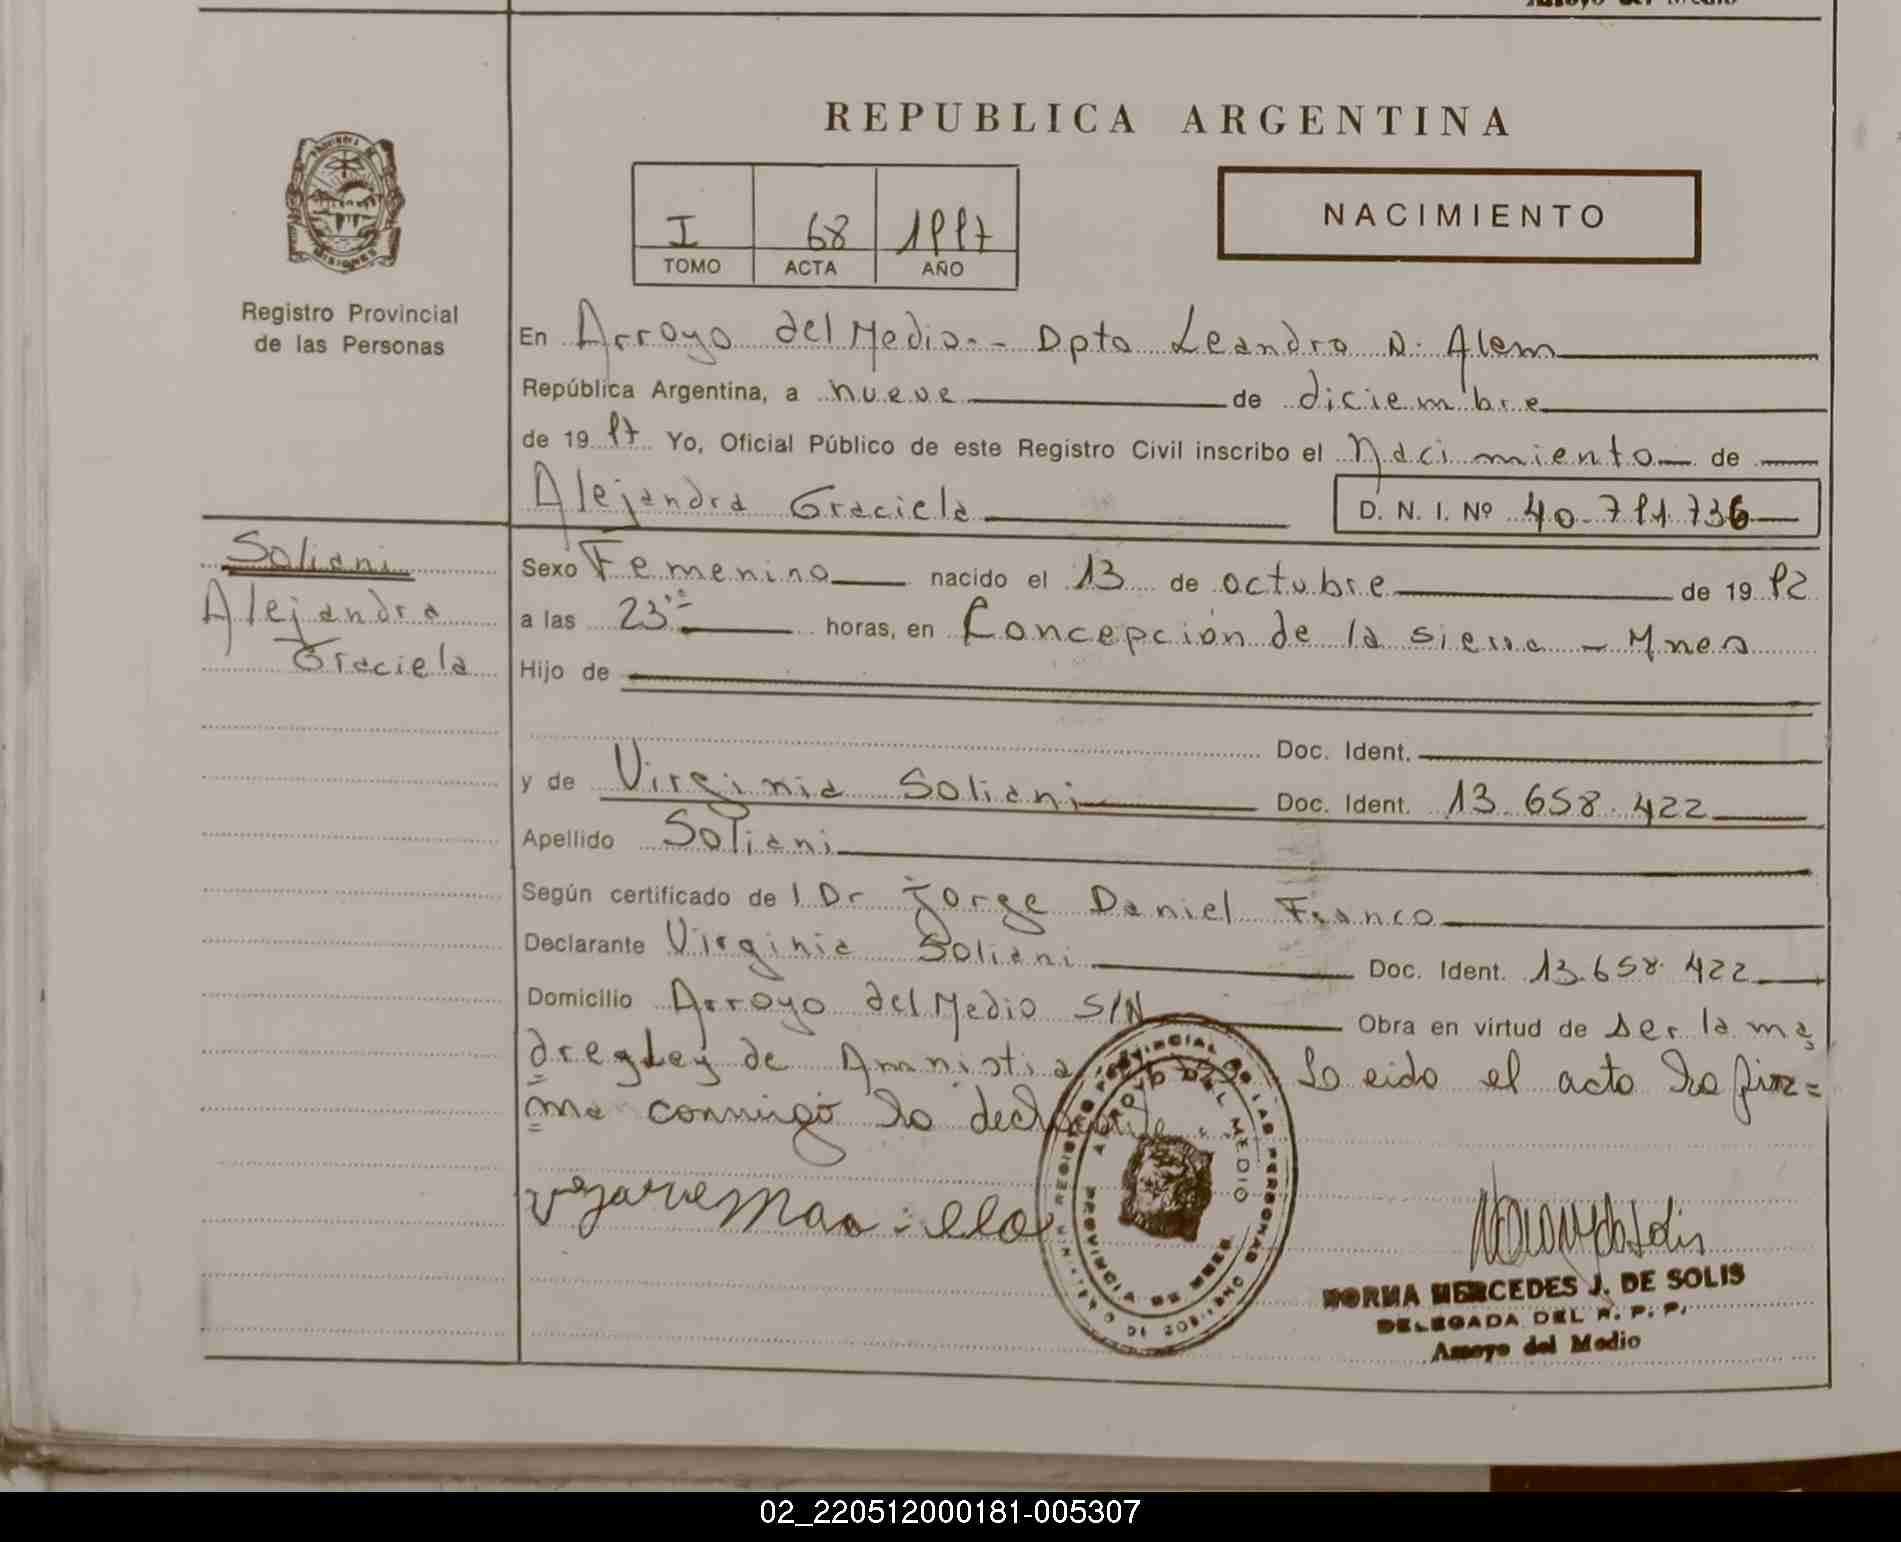 REPUBLICA ARGENTINA
I 68 1997
TOMO ACTA AÑO
NACIMIENTO
Registro Provincial
de las Personas
En Arroyo del Medio.- Dpto Leandro N. Alem
República Argentina, a nueve de diciembre
de 19 97 Yo, Oficial Público de este Registro Civil inscribo el Nacimiento de
Alejandra Graciela D. N. I. Nº 40.791.736
Soliani
Alejandra
Graciela
Sexo Femenino nacido el 13 de octubre de 19 92
a las 23 horas, en Concepción de la sierra - Mnes
Hijo de
Doc. Ident.
y de Virginia Soliani Doc. Ident. 13.658.422
Apellido Soliani
Según certificado de l Dr Jorge Daniel Franco
Declarante Virginia Soliani Doc. Ident. 13.658.422
Domicilio Arroyo del Medio S/N Obra en virtud de ser la ma
dre y Ley de Amnistia Leido el acto la fir=
ma conmigo la declarante
REGISTRO PROVINCIAL DE LAS PERSONAS
ARROYO DEL MEDIO
PROVINCIA DE
NORMA MERCEDES J. DE SOLIS
DELEGADA DEL R. P. P.
Arroyo del Medio
02_220512000181-005307